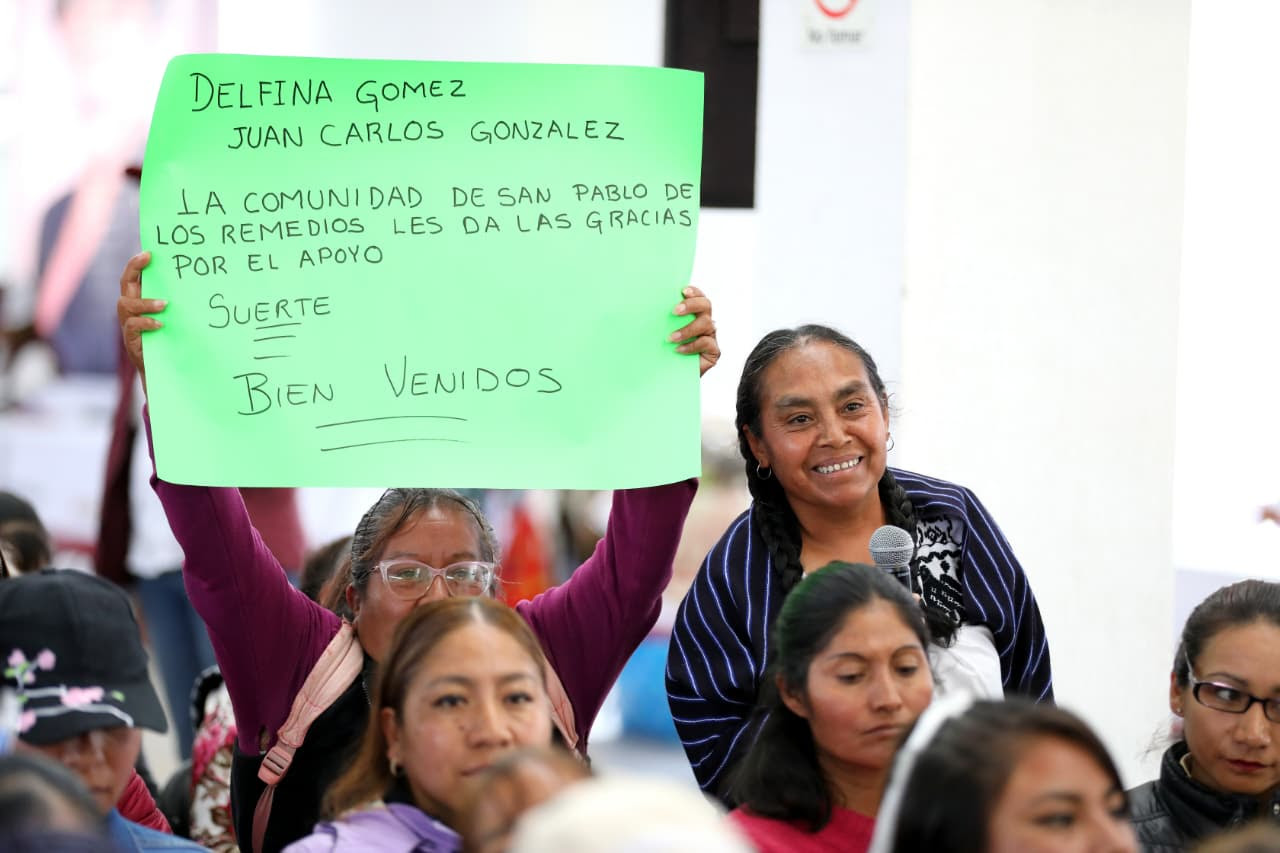 DELFINA GOMEZ
JUAN CARLOS GONZALEZ
LA COMUNIDAD DE SAN PABLO DE
LOS REMEDIOS LES DA LAS GRACIAS
POR EL APOYO
SUERTE
BIEN VENIDOS